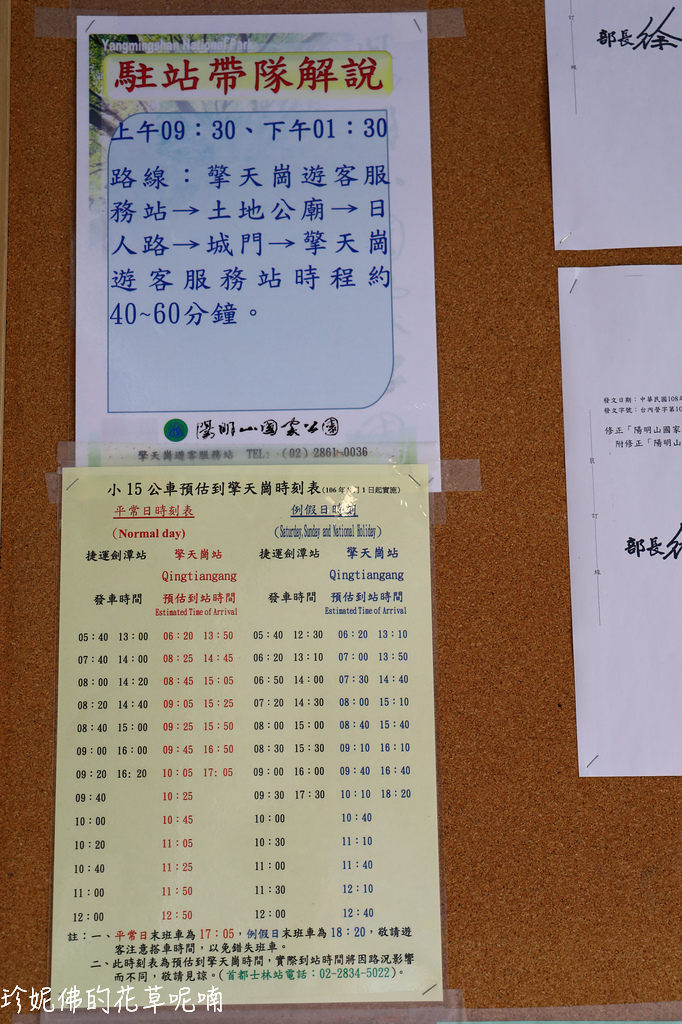 Yangmingshan National Park
駐站帶隊解說
上午09：30、下午01：30
路線：擎天崗遊客服
務站→土地公廟→日
人路→城門→擎天崗
遊客服務站時程約
40~60分鐘。
陽明山國家公園
擎天崗遊客服務站 TEL: (02) 2861-0036
小15公車預估到擎天崗時刻表(106年 月1日起實施)
平常日時刻表 例假日時刻
(Normal day) (Saturday, Sunday and National Holiday)
捷運劍潭站 擎天崗站 捷運劍潭站 擎天崗站
Qingtiangang Qingtiangang
發車時間 預估到站時間 發車時間 預估到站時間
Estimated Time of Arrival Estimated Time of Arrival
05：40 13：00 06：20 13：50 05：40 12：30 06：20 13：10
07：40 14：00 08：25 14：45 06：20 13：10 07：00 13：50
08：00 14：20 08：45 15：05 06：50 14：00 07：30 14：40
08：20 14：40 09：05 15：25 07：20 14：30 08：00 15：10
08：40 15：00 09：25 15：50 08：00 15：00 08：40 15：40
09：00 16：00 09：45 16：50 08：30 15：30 09：10 16：10
09：20 16：20 10：05 17：05 09：00 16：00 09：40 16：40
09：40 10：25 09：30 17：30 10：10 18：20
10：00 10：45 10：00 10：40
10：20 11：05 10：30 11：10
10：40 11：25 11：00 11：40
11：00 11：50 11：30 12：10
12：00 12：50 12：00 12：40
註：一、平常日末班車為17：05，例假日末班車為18：20，敬請遊
客注意搭車時間，以免錯失班車。
二、此時刻表為預估到擎天崗時間，實際到站時間將因路況影響
而不同，敬請見諒。(首都士林站電話：02-2834-5022)。
部長徐
發文日期：中華民國108年
發文字號：台內營字第10
修正「陽明山國家
附修正「陽明山
裝
訂
線
部長徐
訂
線
珍妮佛的花草呢喃